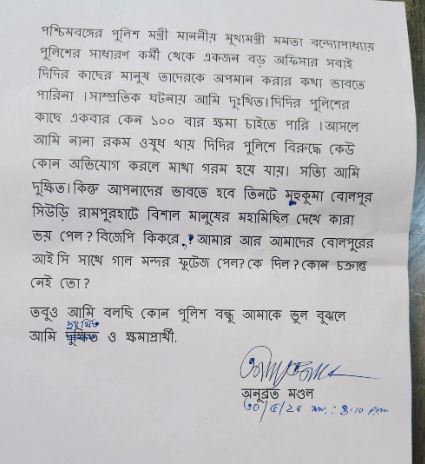 পশ্চিমবঙ্গের পুলিশ মন্ত্রী মাননীয় মুখ্যমন্ত্রী মমতা বন্দ্যোপাধ্যায়
পুলিশের সাধারণ কর্মী থেকে একজন বড় অফিসার সবাই
দিদির কাছের মানুষ তাদেরকে অপমান করার কথা ভাবতে
পারিনা । সাম্প্রতিক ঘটনায় আমি দুঃখিত। দিদির পুলিশের
কাছে একবার কেন ১০০ বার ক্ষমা চাইতে পারি । আসলে
আমি নানা রকম ওষুধ খায় দিদির পুলিশে বিরুদ্ধে কেউ
কোন অভিযোগ করলে মাথা গরম হয়ে যায়। সত্যি আমি
দুক্ষিত। কিন্তু আপনাদের ভাবতে হবে তিনটে মহুকুমা বোলপুর
সিউড়ি রামপুরহাটে বিশাল মানুষের মহামিছিল দেখে কারা
ভয় পেল ? বিজেপি কিকরে ? আমার আর আমাদের বোলপুরের
আই সি সাথে গাল মন্দর ফুটেজ পেল? কে দিল ? কোন চক্রান্ত
নেই তো ?
তবুও আমি বলছি কোন পুলিশ বন্ধু আমাকে ভুল বুঝলে
দুঃখিত
আমি দুক্ষিত ও ক্ষমাপ্রার্থী.
অনুব্রত মণ্ডল
৩০/৫/২৫